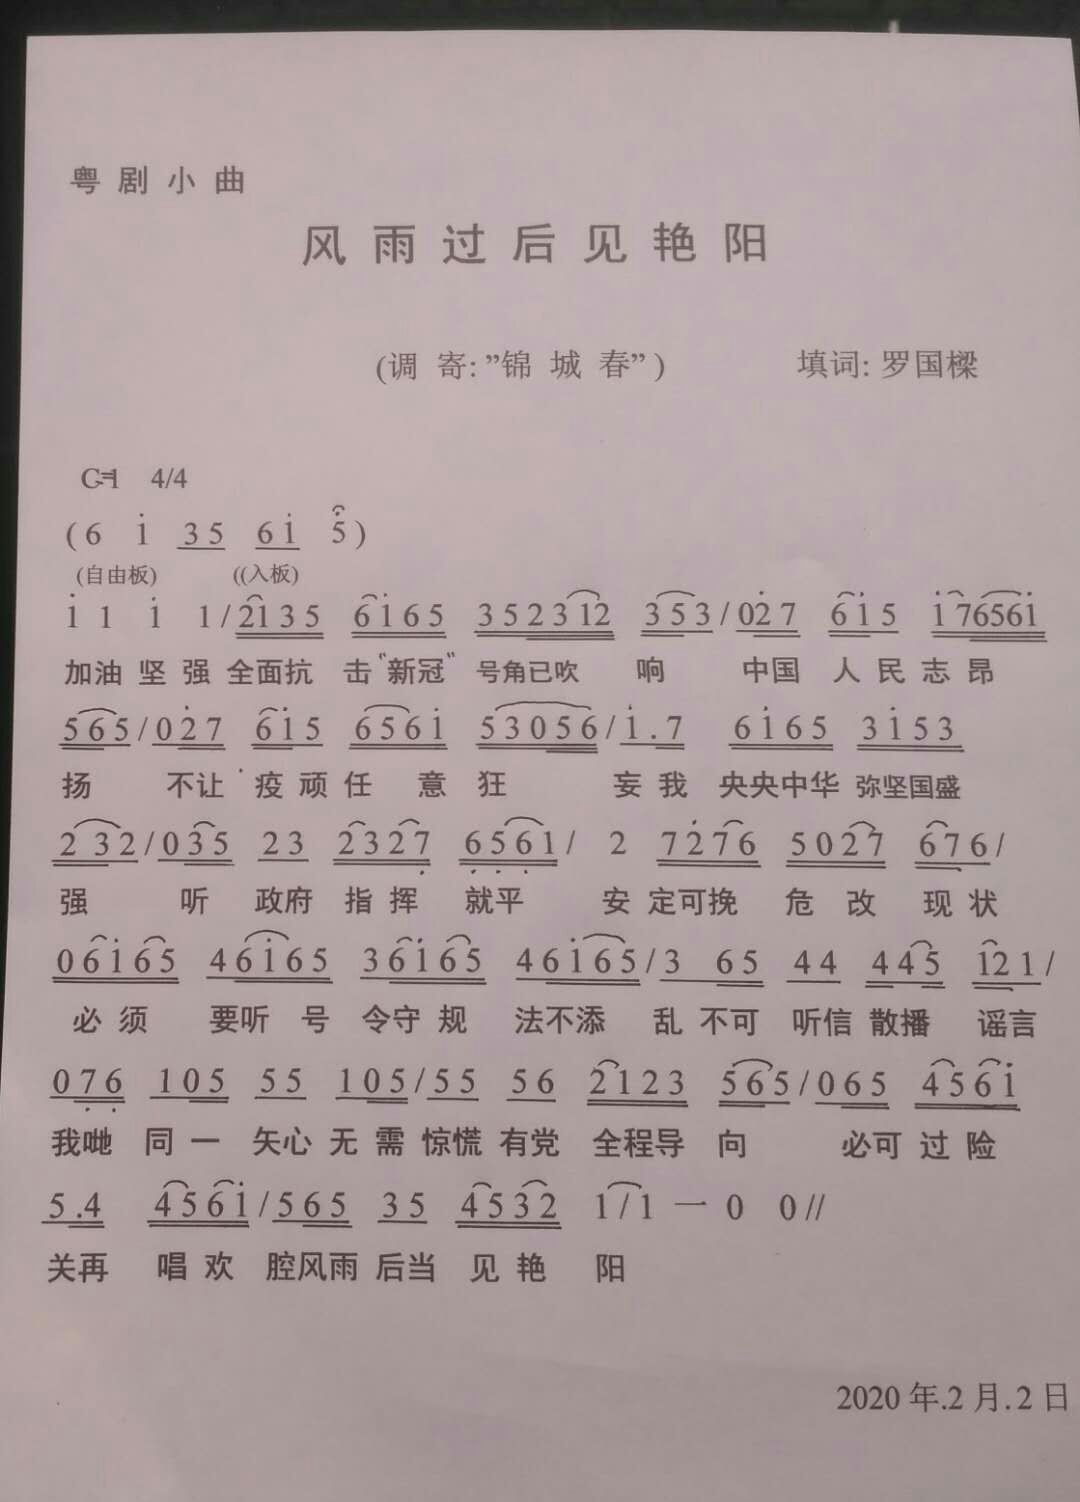 粤剧小曲
风雨过后见艳阳
(调寄:”锦城春”) 填词:罗国樑
C=1 4/4
(6 i 35 6i 5)
(自由板) ((入板)
i 1 i 1/2135 6i65 352312 353/027 6i5 i7656i
加油 坚 强 全面抗 击“新冠” 号角已吹 响 中国 人 民 志 昂
565/027 6i5 656i 53056/i.7 6i65 3i53
扬 不让 疫 顽 任 意 狂 妄 我 央央中华 弥坚国盛
232/035 23 2327 6561/ 2 7276 5027 676/
强 听 政府 指 挥 就平 安 定可挽 危 改 现 状
06i65 46i65 36i65 46i65/3 65 44 445 i21/
必 须 要听 号 令守 规 法不添 乱 不可 听信 散播 谣言
076 105 55 105/55 56 2123 565/065 456i
我哋 同 一 矢心 无 需 惊慌 有党 全程导 向 必可 过 险
5.4 456i/565 35 4532 1/1 一 0 0//
关再 唱 欢 腔风雨 后当 见 艳 阳
2020年.2月.2日